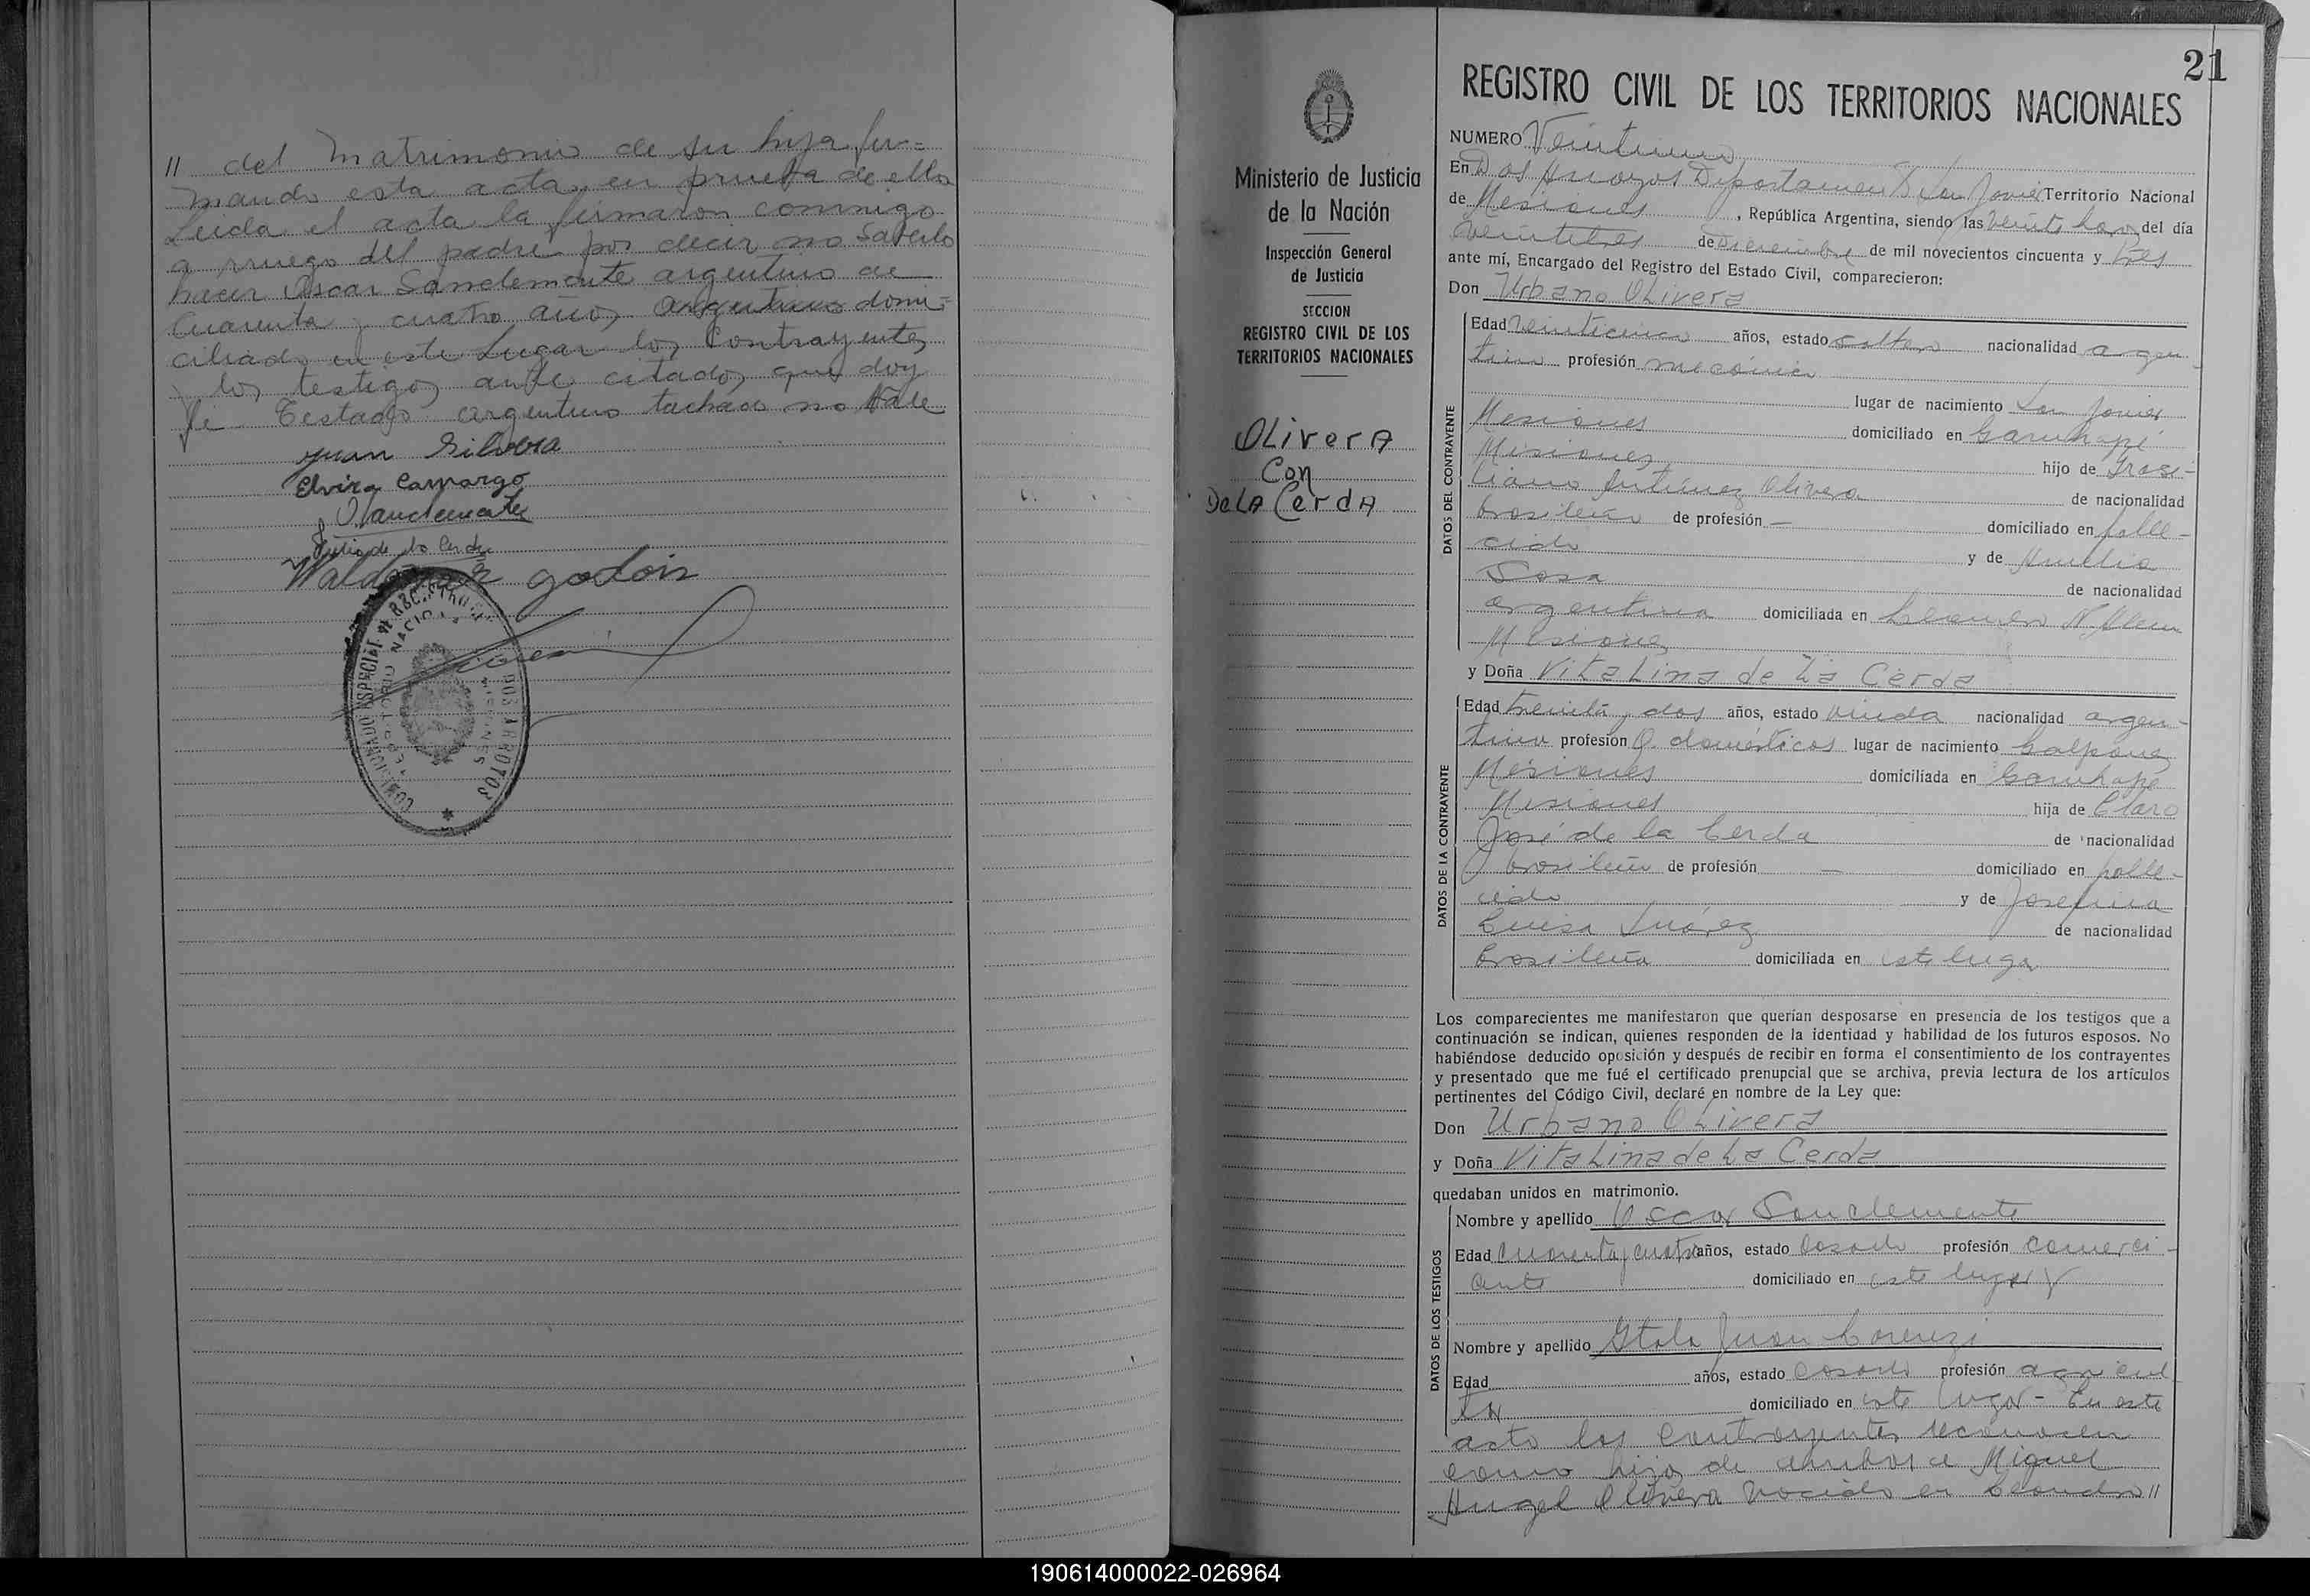 // del Matrimonio de su hija fir=
mando esta acta en prueba de ello
Leida el acta la firmaron conmigo
a ruego del padre por decir no Saberlo
hacer Oscar Sanclemente argentino de
Cuarenta y cuatro años argentino domi=
ciliado en este Lugar los Contrayentes
y los testigos ante citados que doy
fé Testado argentino tachado no Vale
Juan Silvera
Elvira Camargo
O Sanclemente
Julio de la Cerda
Waldemar godois
TERRITORIO NACIONAL
MISIONES
DOS ARROYOS
21
REGISTRO CIVIL DE LOS TERRITORIOS NACIONALES
Ministerio de Justicia
de la Nación
Inspección General
de Justicia
SECCION
REGISTRO CIVIL DE LOS
TERRITORIOS NACIONALES
OLiverA
Con
De LA CerdA
NUMERO Veintiuno
En Dos Arroyos Departamento San Javier Territorio Nacional
de Misiones, República Argentina, siendo las veinte horas del día
veintitres de Diciembre de mil novecientos cincuenta y tres
ante mí, Encargado del Registro del Estado Civil, comparecieron:
Don Urbano Olivera
DATOS DEL CONTRAYENTE
Edad veinticinco años, estado soltero nacionalidad argen-
tino profesión mecánico
lugar de nacimiento San Javier
Misiones domiciliado en Garuhapé
Misiones hijo de Grasi-
liano Antúnez Olivera de nacionalidad
brasileño de profesión — domiciliado en falle-
cido y de Amelia
Sosa de nacionalidad
argentina domiciliada en Leandro N. Alem
Misiones
y Doña VitaLina de La Cerda
DATOS DE LA CONTRAYENTE
Edad treinta y dos años, estado viuda nacionalidad argen-
tina profesión Q. domésticos lugar de nacimiento Galpones
Misiones domiciliada en Garuhapé
Misiones hija de Claro
José de la Cerda de nacionalidad
brasileño de profesión — domiciliado en falle-
cido y de Josefina
Luisa Suárez de nacionalidad
brasileña domiciliada en este lugar
Los comparecientes me manifestaron que querían desposarse en presencia de los testigos que a
continuación se indican, quienes responden de la identidad y habilidad de los futuros esposos. No
habiéndose deducido oposición y después de recibir en forma el consentimiento de los contrayentes
y presentado que me fué el certificado prenupcial que se archiva, previa lectura de los artículos
pertinentes del Código Civil, declaré en nombre de la Ley que:
Don Urbano OLivera
y Doña VitaLina de La Cerda
quedaban unidos en matrimonio.
DATOS DE LOS TESTIGOS
Nombre y apellido Oscar Sanclemente
Edad cuarenta y cuatro años, estado casado profesión comerci-
ante domiciliado en este lugar y
Nombre y apellido Italo Juan Lorenzi
Edad años, estado casado profesión agricul
tor domiciliado en este lugar - En este
acto los contrayentes reconocen
como hijo de ambos a Miguel
Angel Olivera nacido en Leandro //
190614000022-026964